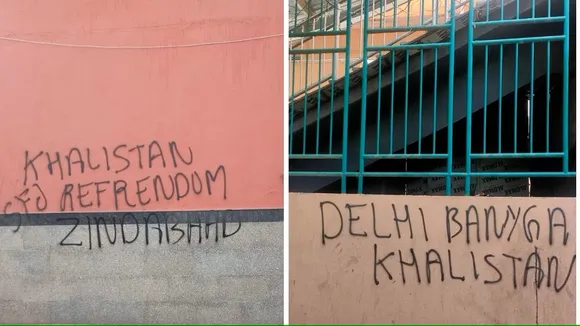 KHALISTAN
SFJ REFRENDOM
ZINDABAAD
DELHI BANYGA
KHALISTAN